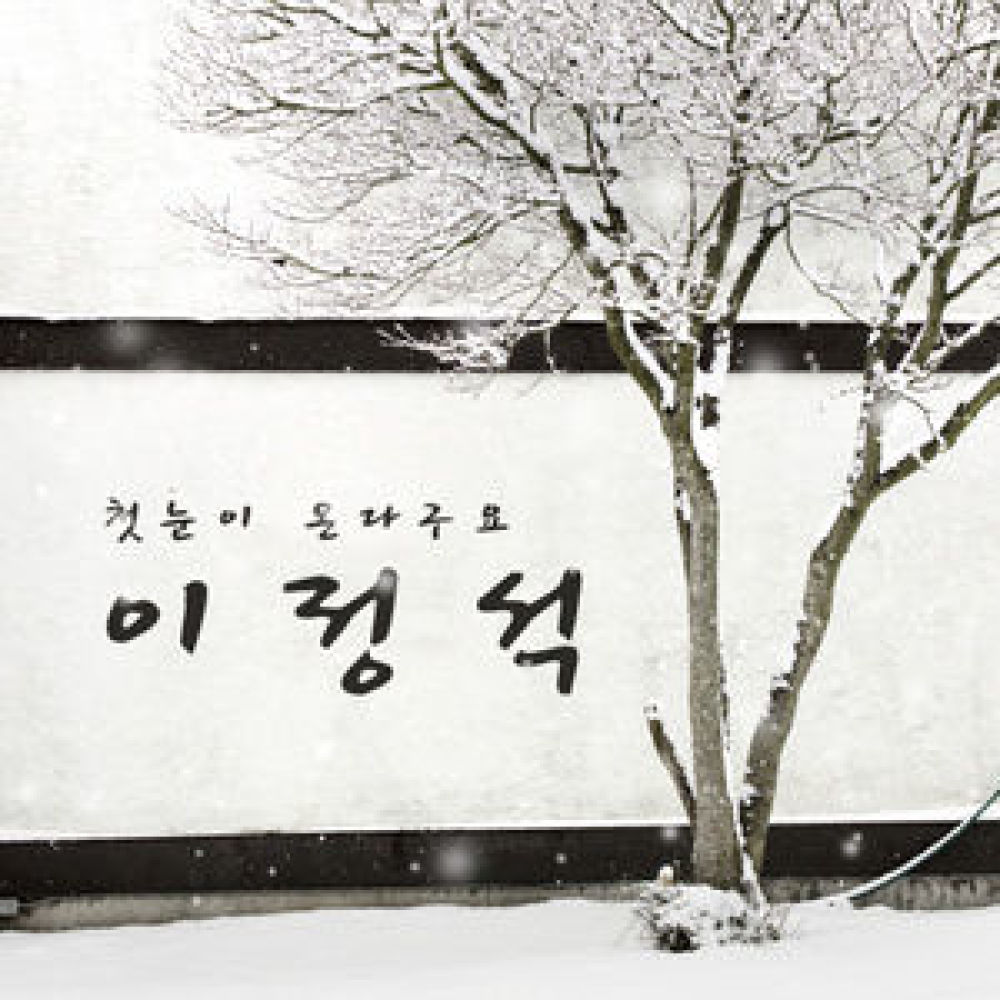 첫눈이 온다구요
이정석